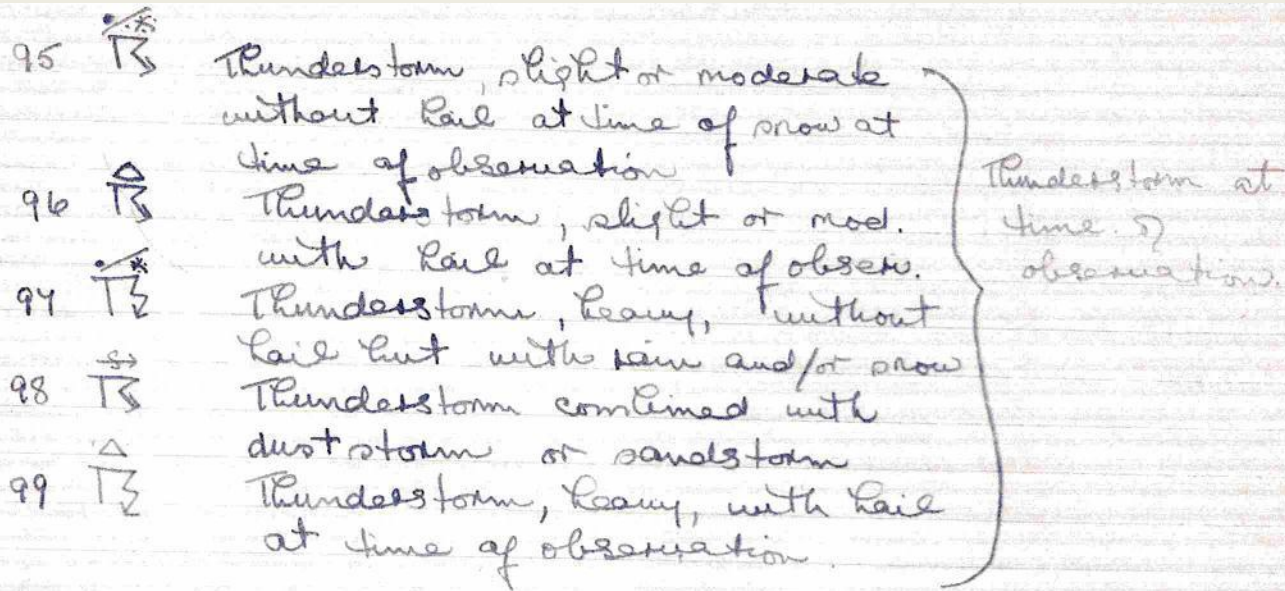 95 Thunderstorm, slight or moderate
without hail at time of snow at
time of observation
96 Thunderstorm, slight or mod.
with hail at time of obser.
97 Thunderstorm, heavy, without
hail but with rain and/or snow
98 Thunderstorm combined with
dust storm or sandstorm
99 Thunderstorm, heavy, with hail
at time of observation.
Thunderstorm at
time of
observation.